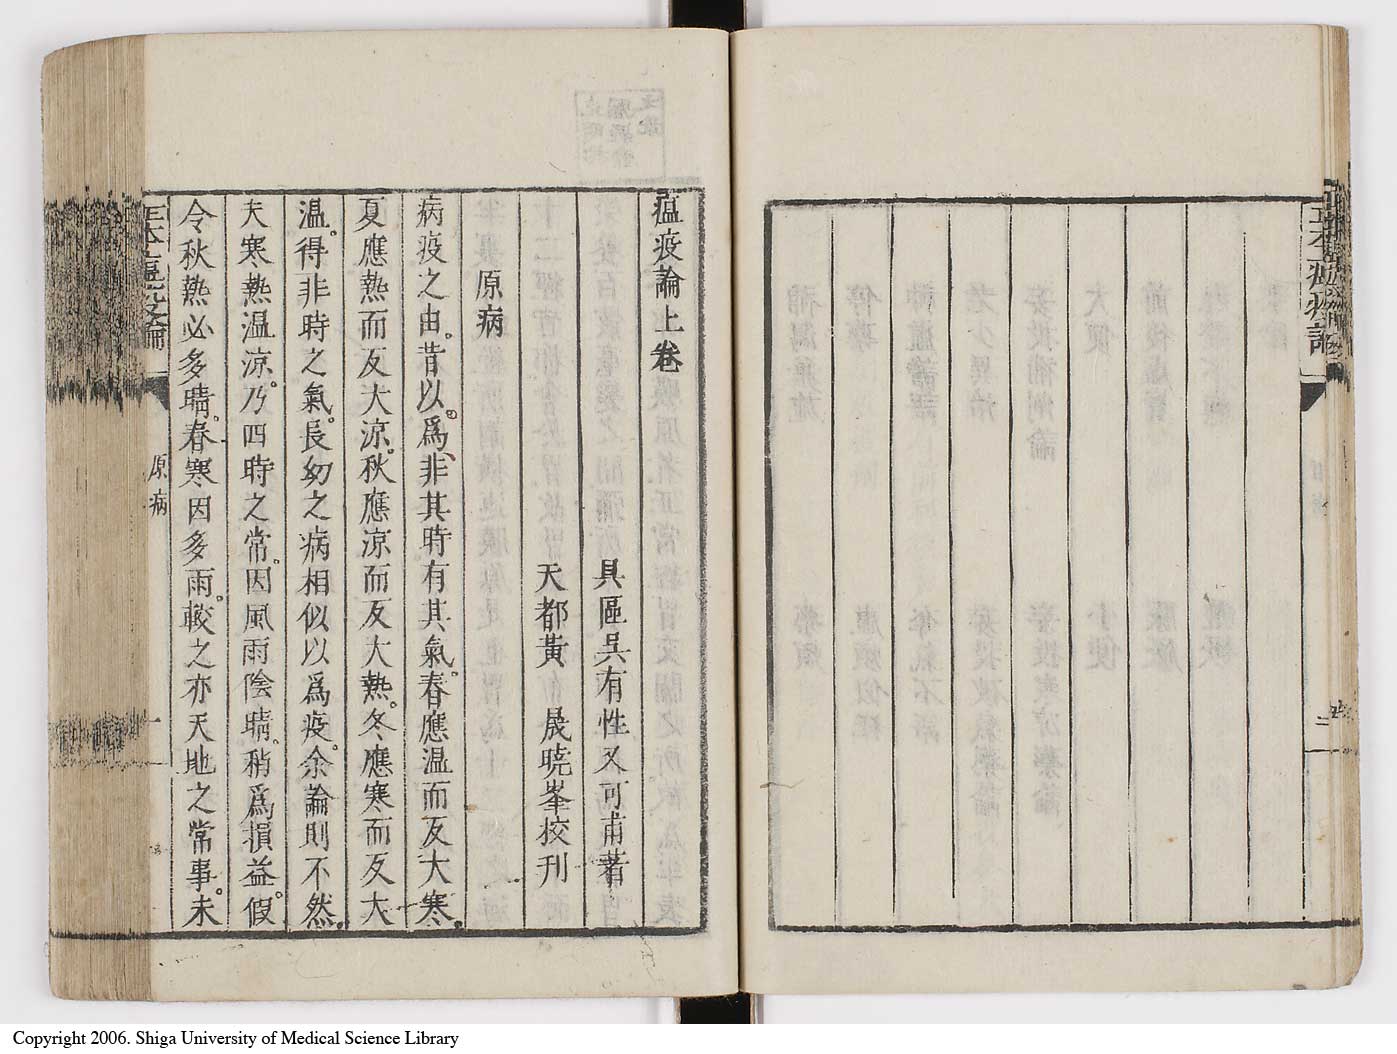 瘟疫論上卷
具區吳有性又可甫著
天都黃 晟曉峯挍刊
原病
病疫之由。昔以。爲、非其時有其氣。春應温而反大寒。
夏應熱而反大凉。秋應凉而反大熱。冬應寒而反大
温。得非時之氣。長幼之病相似以爲疫。余論則不然。
夫寒熱温凉。乃四時之常。因風雨陰晴。稍爲損益。假
令秋熱必多晴。春寒因多雨。較之亦天地之常事。未
原病
一
二
Copyright 2006. Shiga University of Medical Science Library